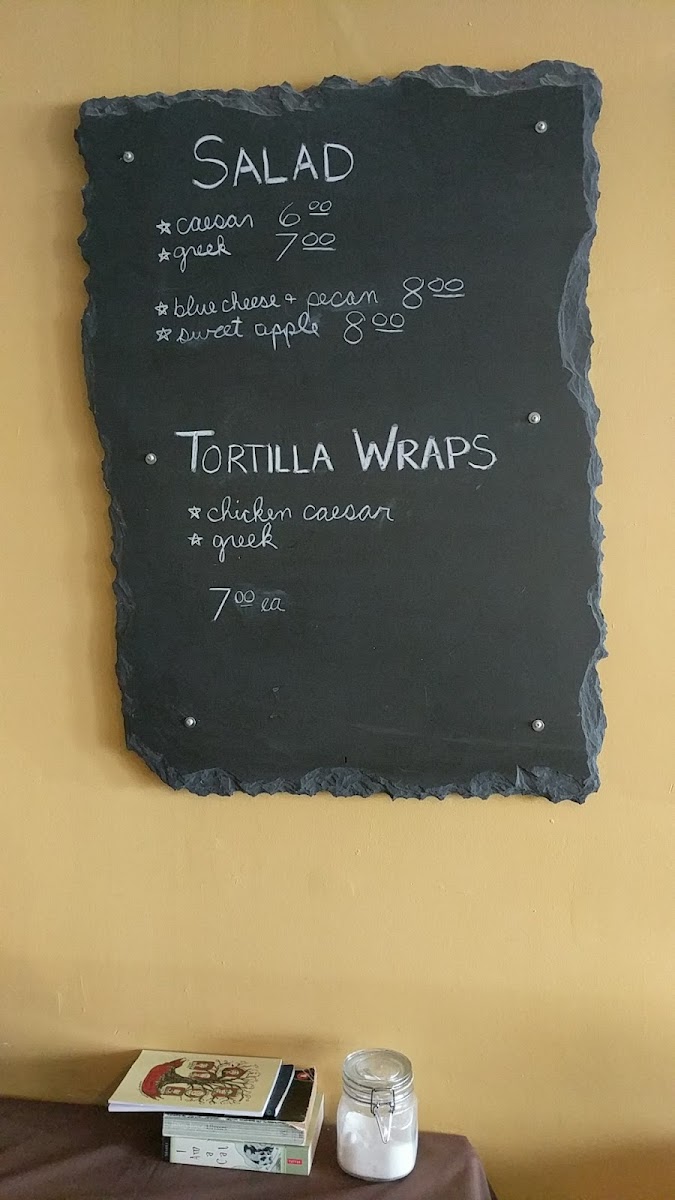 SALAD
☆ caesar 6.00
☆ greek 7.00
☆ blue cheese + pecan 8.00
☆ sweet apple 8.00
TORTILLA WRAPS
☆ chicken caesar
☆ greek
7.00 ea
I Am a Cat